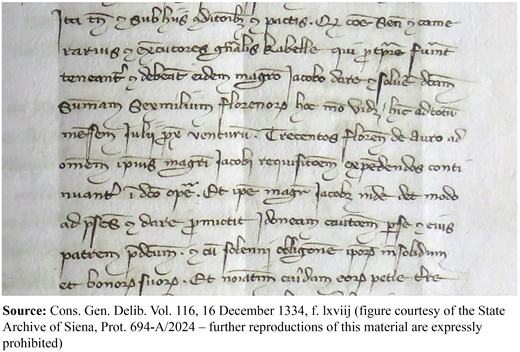 Ita tn̄ & sub hiis 9ditōībȝ & pactis. Qꝫ cōe Sen̄ & came
rarius & execūtores gn̄alis kabelle qui ꝑ tꝑe fūint
teneant᷑ & debeāt eidem magrō Jacobo dare & solue dc̄am
Sum̄am Sexmilium florenoꝝ hoc mō vidꝫ hīc ad totū
mensem Julij ꝓxe venturū. Trecentos floren̄ de auro ad
omēm ip̄ius magrī Jacobi requisitōem expēdendos conti
nuant᷑ ī dc̄o oꝑe. Et ip̄e magr̄ Jacobȝ īnde det modo
ad pn̄s & dare ꝓmictit Idoneam cautōem ꝑ se & eius
patrem p̄dc̄um. & cū solenni obligōne ip̄oꝝ in solidum
et bonoꝝ suoꝝ. Et noīatim eoꝝ
Source: Cons. Gen. Delib. Vol. 116, 16 December 1334, f. lxviij (figure courtesy of the State
Archive of Siena, Prot. 694-A/2024 – further reproductions of this material are expressly
prohibited)